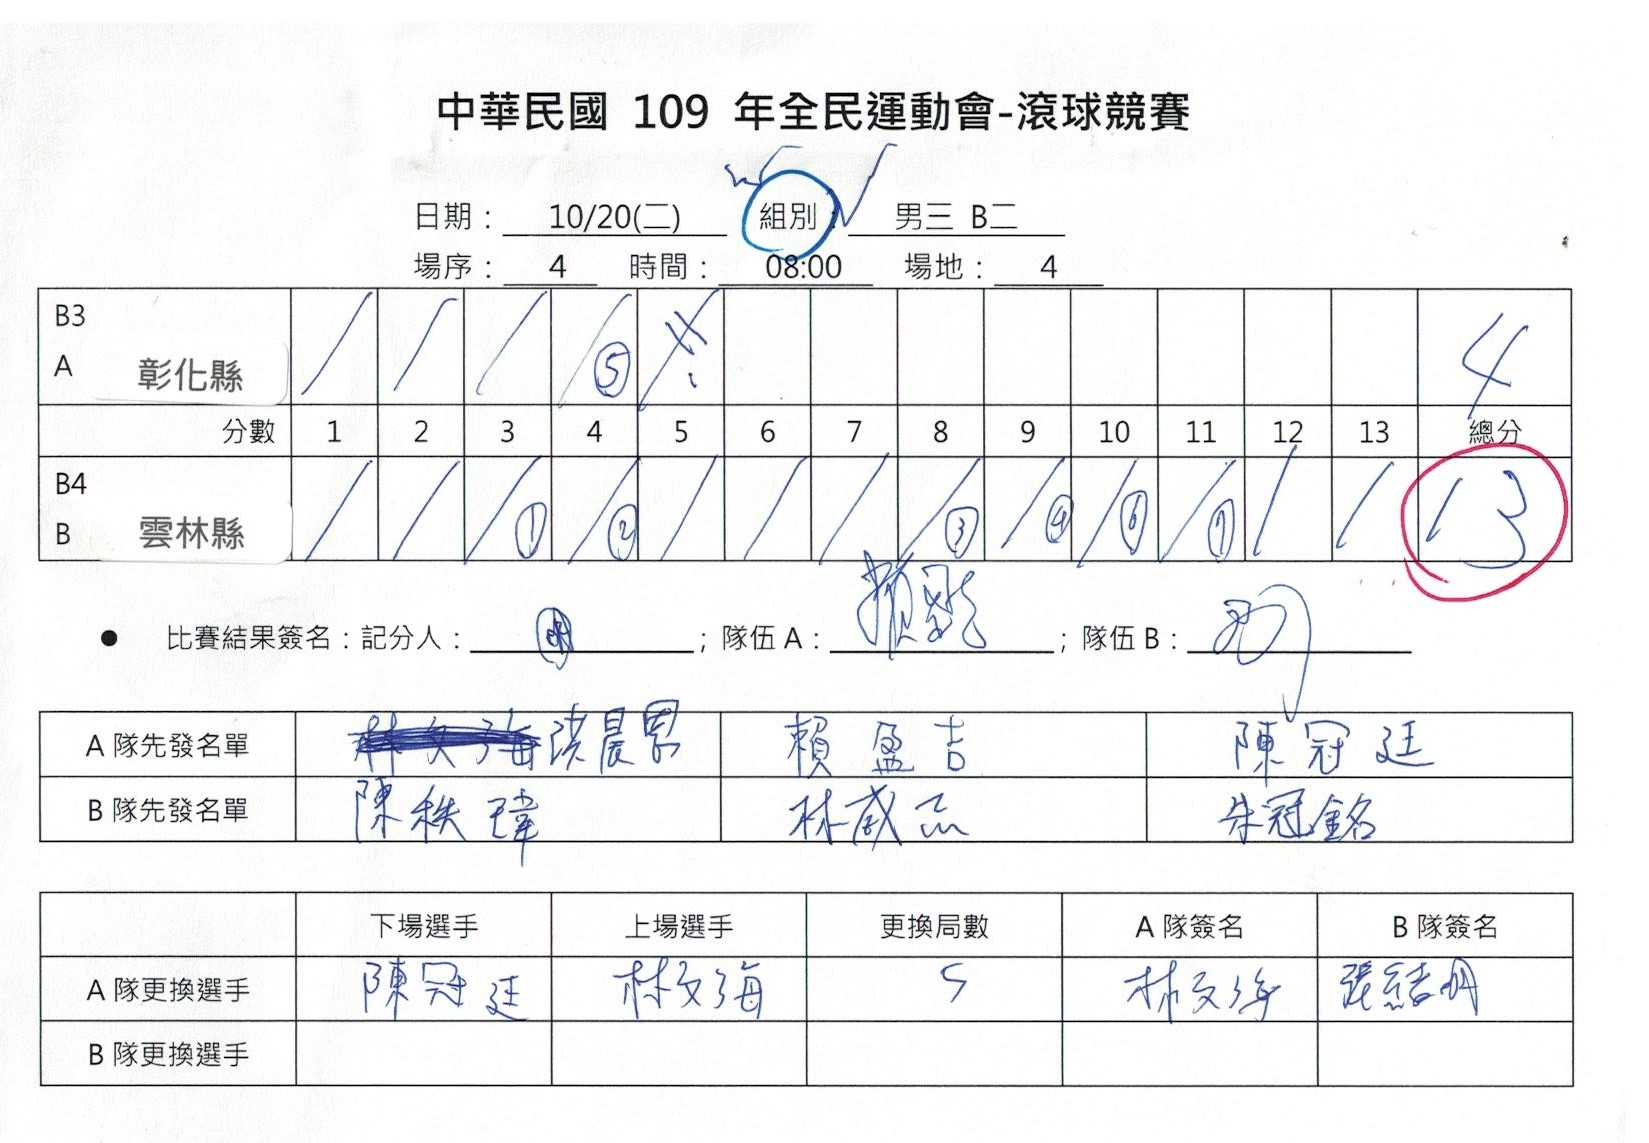 中華民國 109 年全民運動會-滾球競賽
日期： 10/20(二) 組別： 男三 B二
場序： 4 時間： 08:00 場地： 4
B3
A 彰化縣 / / / /⑤ / 4
分數 1 2 3 4 5 6 7 8 9 10 11 12 13 總分
B4
B 雲林縣 / / /① /② / / / /③ /④ /⑥ /⑦ / / 13
● 比賽結果簽名：記分人： ；隊伍 A： ；隊伍 B：
A 隊先發名單 洪晨 賴盈吉 陳冠廷
B 隊先發名單 陳秩瑋 林威志 朱冠銘
下場選手 上場選手 更換局數 A 隊簽名 B 隊簽名
A 隊更換選手 陳冠廷 林文海 5 林文海
B 隊更換選手